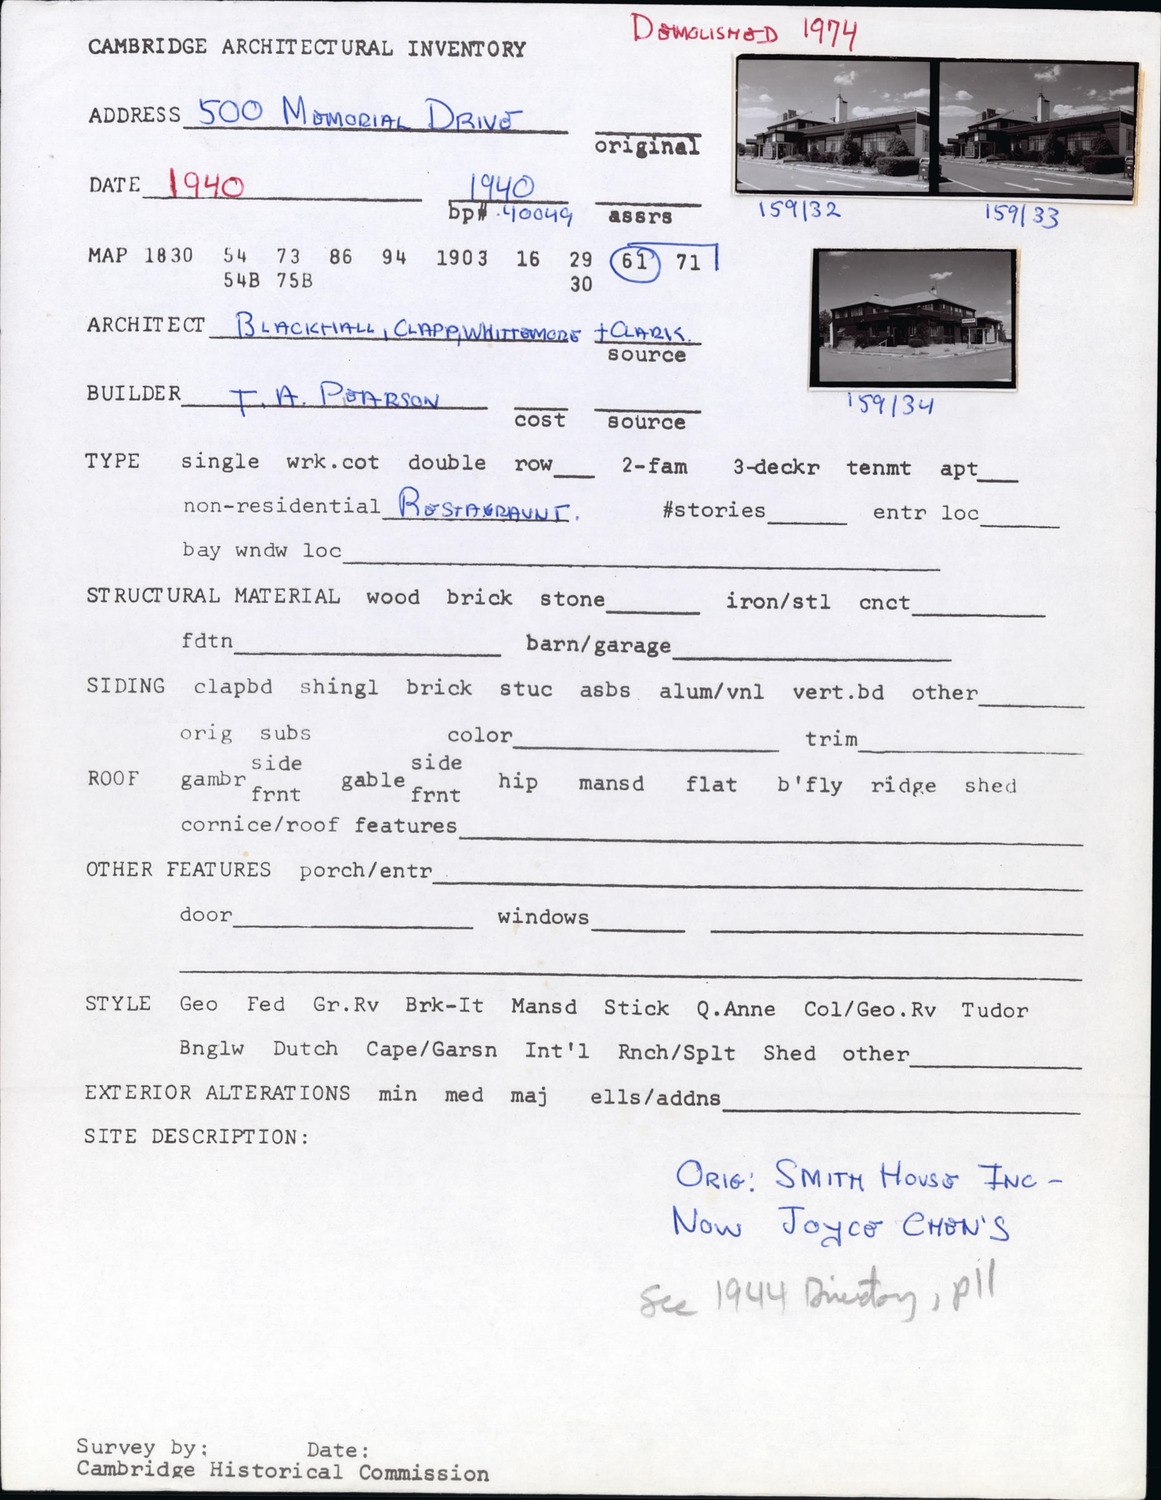 DEMOLISHED 1974
CAMBRIDGE ARCHITECTURAL INVENTORY
ADDRESS 500 MEMORIAL DRIVE
original
DATE 1940 1940
bp# 40049 assrs
159/32 159/33
MAP 1830 54 73 86 94 1903 16 29 61 71
54B 75B 30
ARCHITECT BLACKHALL, CLAPP, WHITTEMORE + CLARK.
source
BUILDER T. A. PEARSON
cost source
159/34
TYPE single wrk.cot double row 2-fam 3-deckr tenmt apt
non-residential RESTAURAUNT. #stories entr loc
bay wndw loc
STRUCTURAL MATERIAL wood brick stone iron/stl cnct
fdtn barn/garage
SIDING clapbd shingl brick stuc asbs alum/vnl vert.bd other
orig subs color trim
side side
ROOF gambr gable hip mansd flat b'fly ridge shed
frnt frnt
cornice/roof features
OTHER FEATURES porch/entr
door windows
STYLE Geo Fed Gr.Rv Brk-It Mansd Stick Q.Anne Col/Geo.Rv Tudor
Bnglw Dutch Cape/Garsn Int'l Rnch/Splt Shed other
EXTERIOR ALTERATIONS min med maj ells/addns
SITE DESCRIPTION:
ORIG: SMITH HOUSE INC -
NOW JOYCE CHEN'S
See 1944 Directory, p11
Survey by: Date:
Cambridge Historical Commission